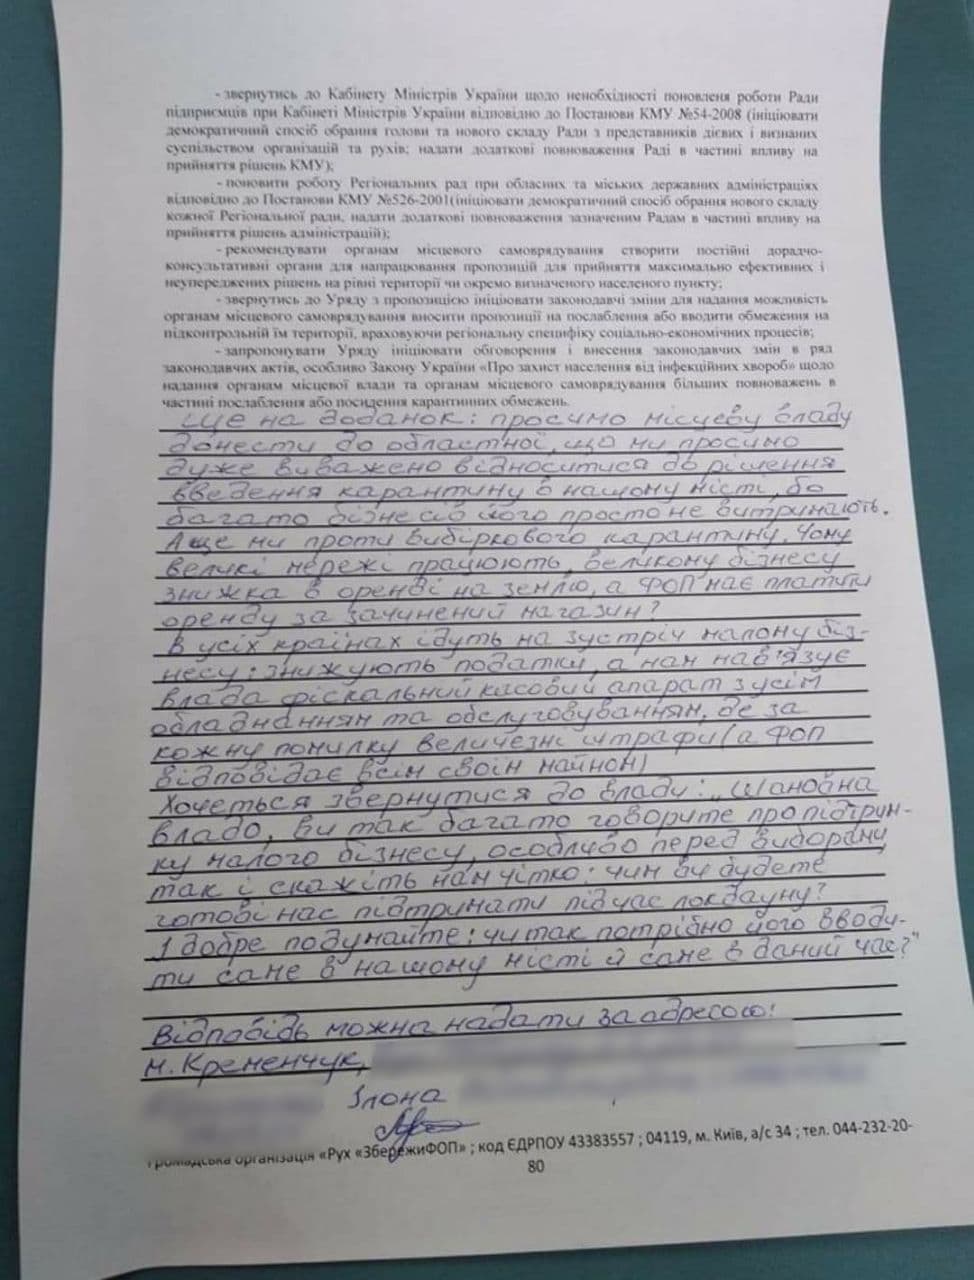 - звернутись до Кабінету Міністрів України щодо ненобхідності поновленя роботи Ради
підприємців при Кабінеті Міністрів України відповідно до Постанови КМУ №54-2008 (ініціювати
демократичний спосіб обрання голови та нового складу Ради з представників дієвих і визнаних
суспільством організацій та рухів; надати додаткові повноваження Раді в частині впливу на
прийняття рішень КМУ);
- поновити роботу Регіональних рад при обласних та міських державних адміністраціях
відповідно до Постанови КМУ №526-2001(ініціювати демократичний спосіб обрання нового складу
кожної Регіональної ради, надати додаткові повноваження зазначеним Радам в частині впливу на
прийняття рішень адміністрацій);
- рекомендувати органам місцевого самоврядування створити постійні дорадчо-
консультативні органи для напрацювання пропозицій для прийняття максимально ефективних і
неупереджених рішень на рівні території чи окремо визначеного населеного пункту;
- звернутись до Уряду з пропозицією ініціювати законодавчі зміни для надання можливість
органам місцевого самоврядування вносити пропозиції на послаблення або вводити обмеження на
підконтрольній їм території, враховуючи регіональну специфіку соціально-економічних процесів;
- запропонувати Уряду ініціювати обговорення і внесення законодавчих змін в ряд
законодавчих актів, особливо Закону України «Про захист населення від інфекційних хвороб» щодо
надання органам місцевої влади та органам місцевого самоврядування більших повноважень в
частині послаблення або посидення карантинних обмежень.
Ще на доданок: просимо місцеву владу
донести до областної, що ми просимо
дуже виважено відноситися до рішення
введення карантину в нашому місті, бо
багато бізнесів його просто не витримають.
А ще ми проти вибіркового карантину. Чому
великі мережі працюють, великому бізнесу
знижка в оренді на землю, а ФОП має платити
оренду за зачинений магазин?
В усіх країнах ідуть на зустріч малому біз-
несу: знижують податки, а нам нав'язує
влада фіскальний касовий апарат з усім
обладнанням та обслуговуванням, де за
кожну помилку величезні штрафи (а ФОП
відповідає всім своїм майном)
Хочеться звернутися до влади: „Шановна
владо, ви так багато говорите про підтрим-
ку малого бізнесу, особливо перед виборами,
так і скажіть нам чітко: чим ви будете
готові нас підтримати під час локдауну?
І добре подумайте: чи так потрібно його вводи-
ти саме в нашому місті й саме в даний час?"
Відповідь можна надати за адресою:
м. Кременчук,
Ілона
Громадська організація «Рух «ЗбережиФОП» ; код ЄДРПОУ 43383557 ; 04119, м. Київ, а/с 34 ; тел. 044-232-20-
80